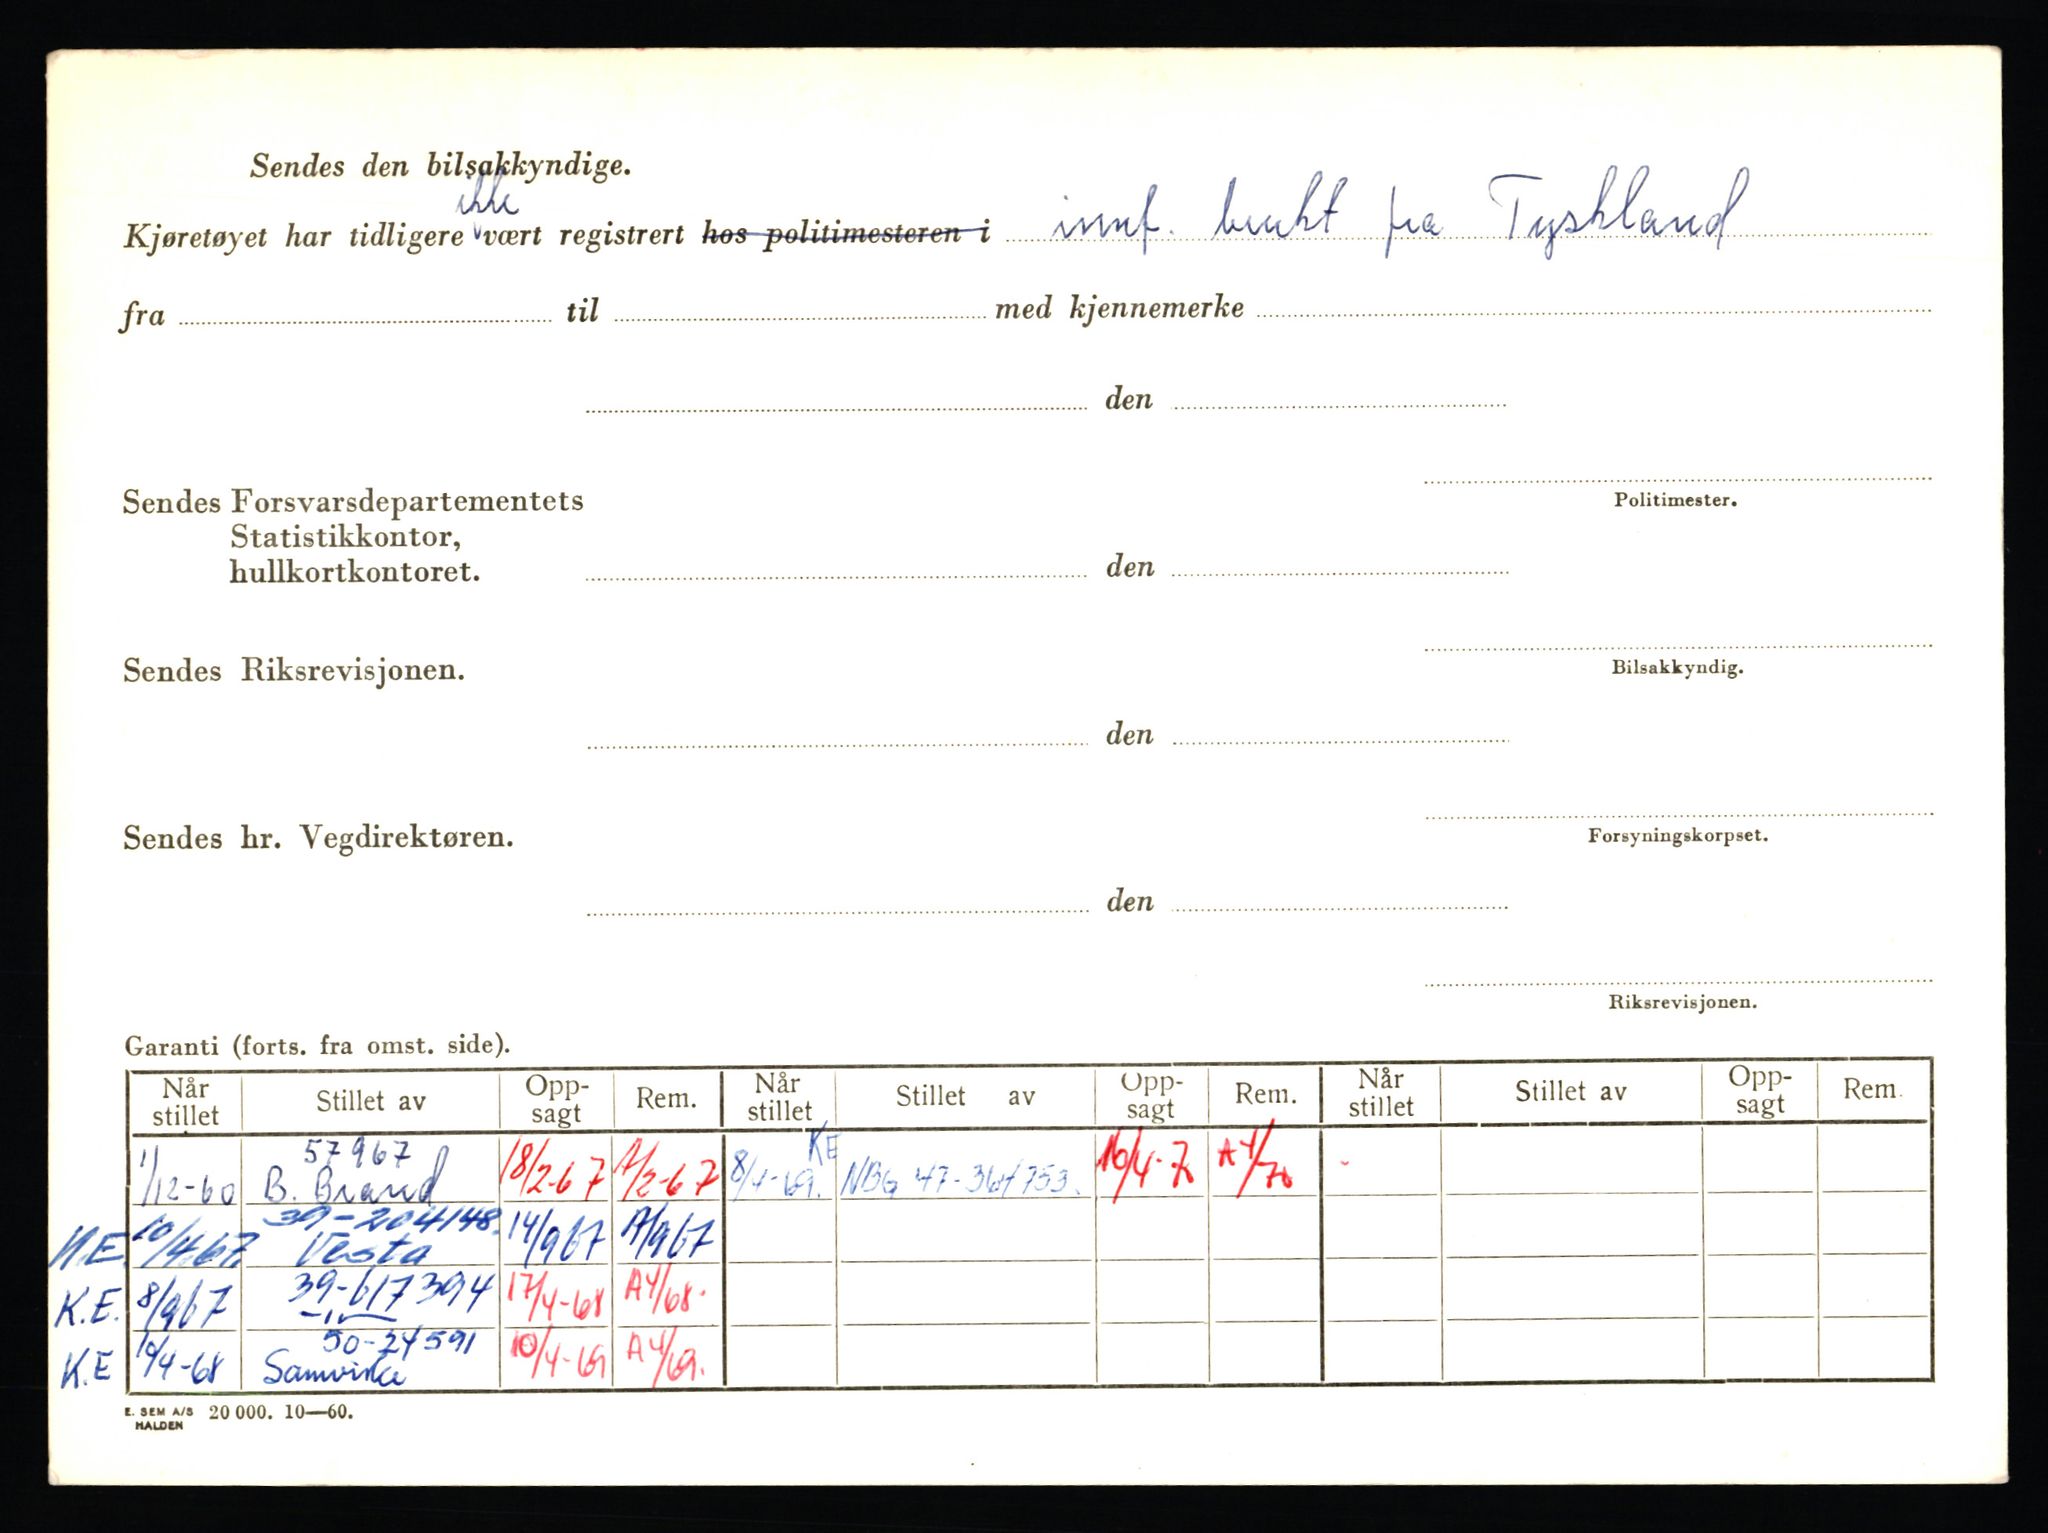 Sendes den bilsakkyndige.
Kjøretøyet har tidligere ikke vært registrert hos politimesteren i innf. brukt fra Tyskland
fra til med kjennemerke
den
Politimester.
Sendes Forsvarsdepartementets
Statistikkontor,
hullkortkontoret.
den
Bilsakkyndig.
Sendes Riksrevisjonen.
den
Forsyningskorpset.
Sendes hr. Vegdirektøren.
den
Riksrevisjonen.
Garanti (forts. fra omst. side).
Når stillet Stillet av Opp-sagt Rem. Når stillet Stillet av Opp-sagt Rem. Når stillet Stillet av Opp-sagt Rem.
57967 KE
1/12-60 B. Brand 18/2-67 A/2-67 8/4-69. 16/4-70 A4/70
39-204148.
N.E. 10/4.67. Vesta 14/967 A/967
K.E. 8/967 39-617394 17/4-68 A4/68.
50-24591
K.E 10/4-68 Samvirke 10/4-69 A4/69.
E. SEM A/S HALDEN 20 000. 10—60.